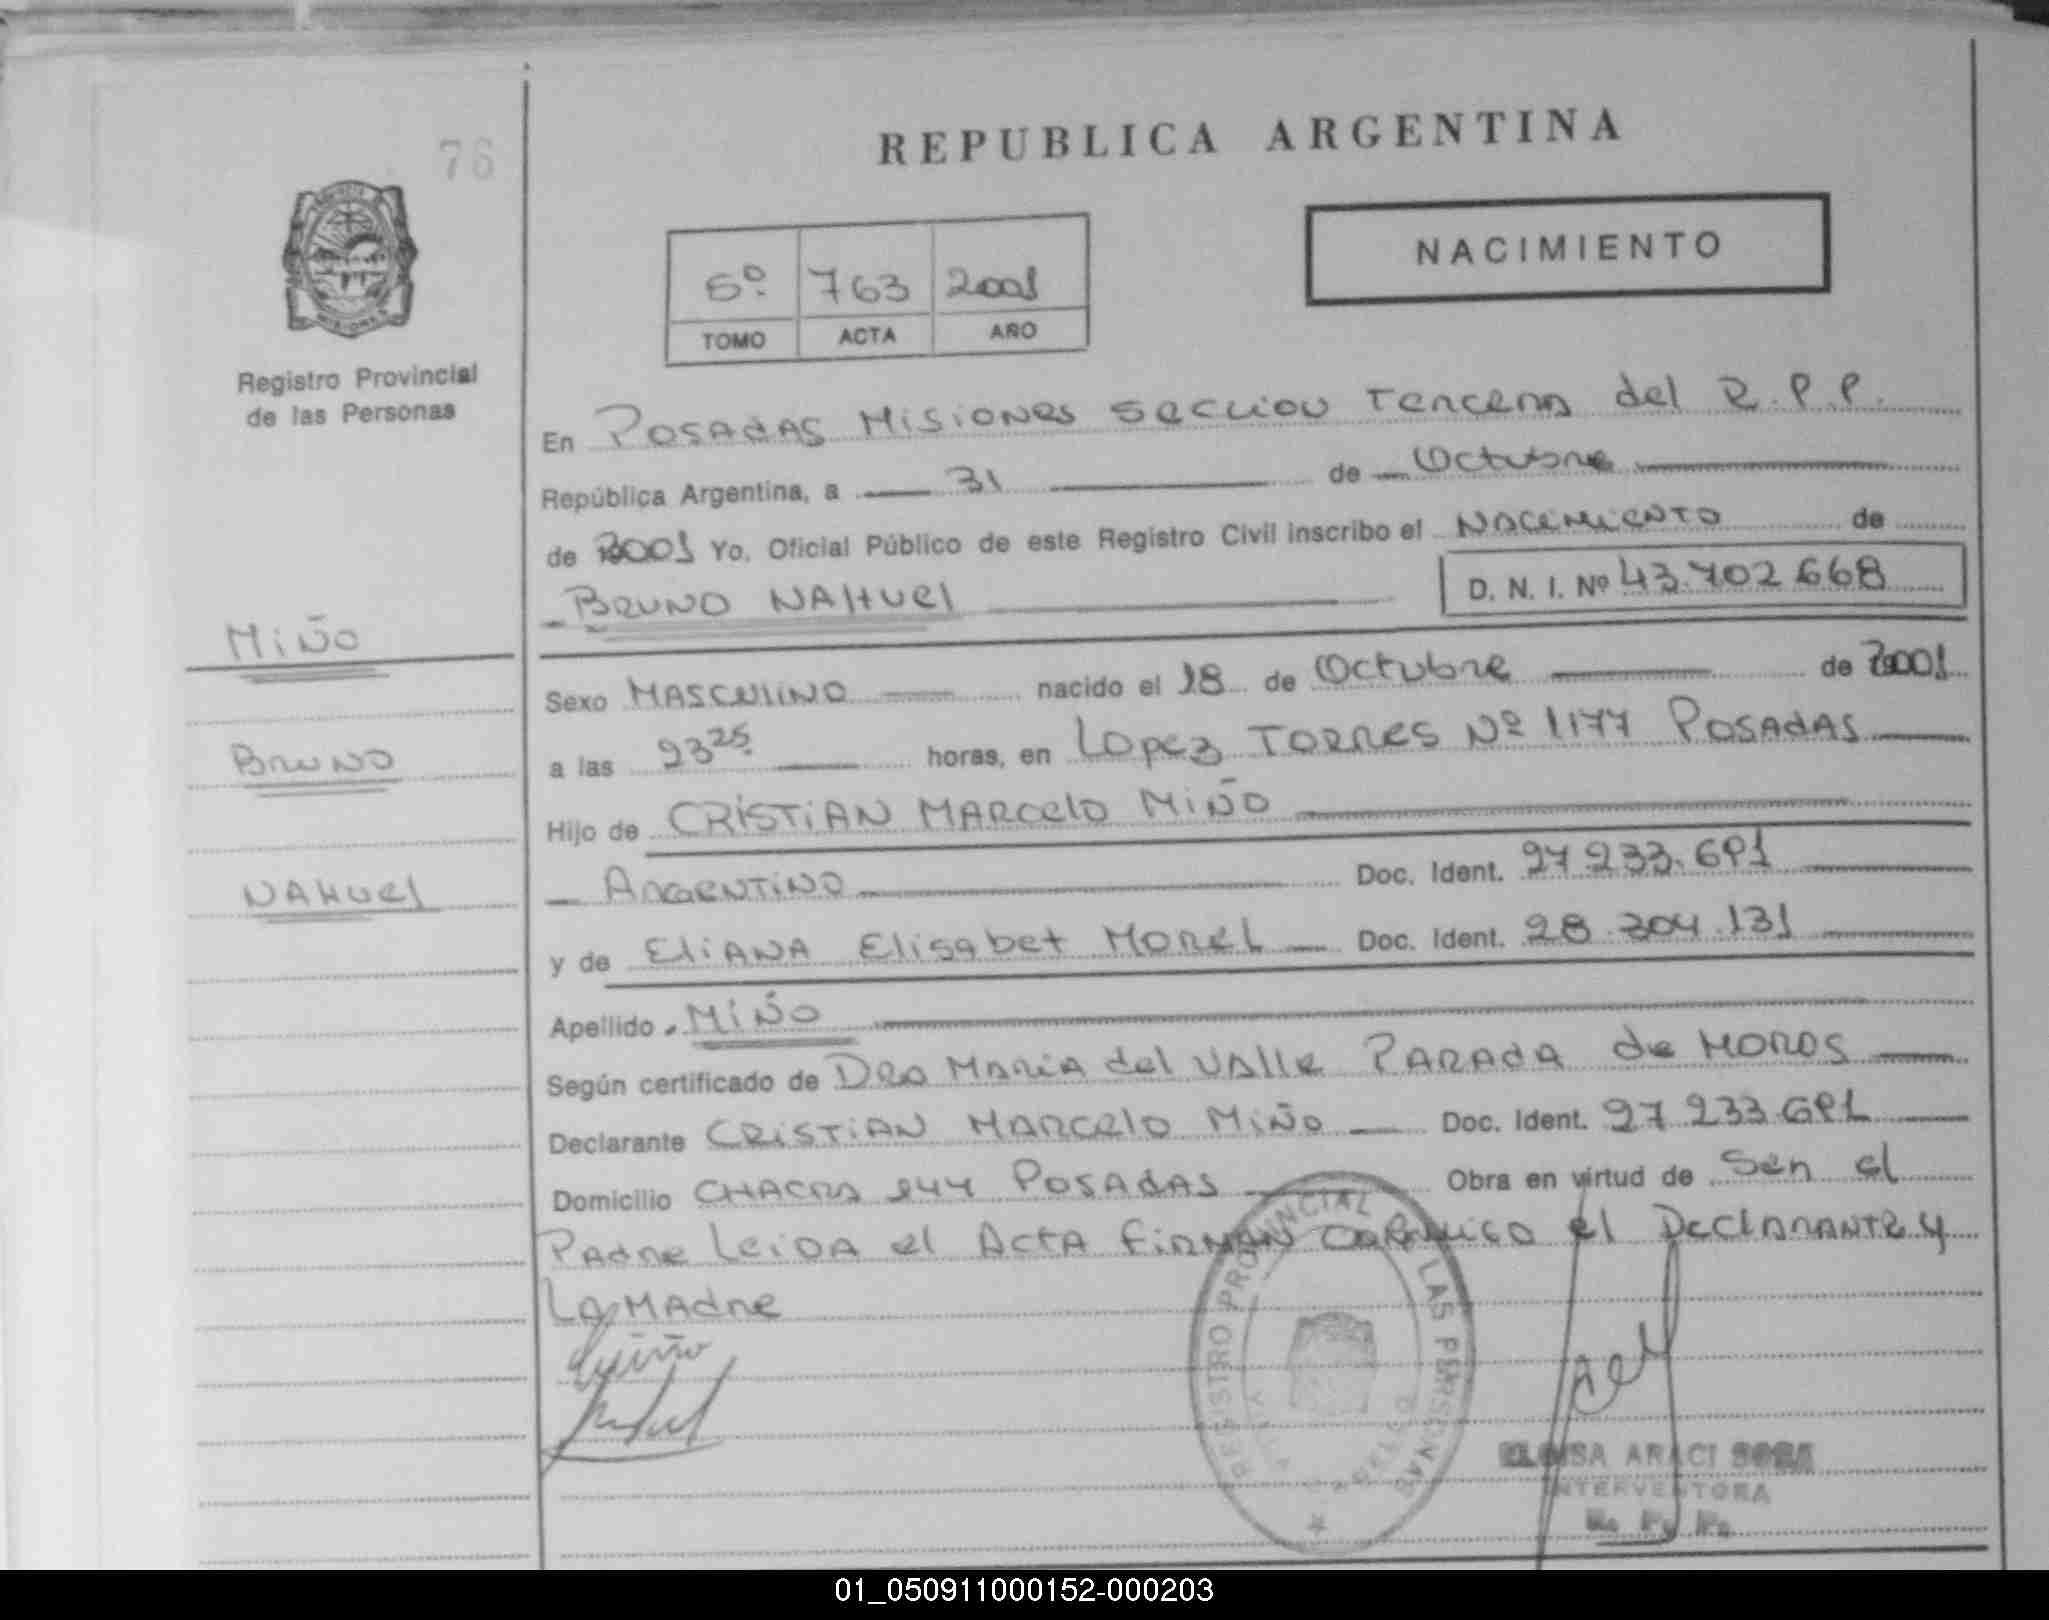 76
REPUBLICA ARGENTINA
NACIMIENTO
6º 763 2001
TOMO ACTA AÑO
Registro Provincial
de las Personas
En POSADAS MISIONES SECCION TERCERA del R.P.P.
República Argentina, a 31 de Octubre
de 2001 Yo, Oficial Público de este Registro Civil inscribo el NACIMIENTO de
BRUNO NAHUEL D. N. I. Nº 43.702.668
MIÑO
BRUNO
NAHUEL
Sexo MASCULINO nacido el 18 de Octubre de 2001
a las 23 25 horas, en LOPEZ TORRES Nº 1177 POSADAS
Hijo de CRISTIAN MARCELO MIÑO
ARGENTINO Doc. Ident. 27.233.691
y de ELIANA Elisabet MOREL Doc. Ident. 28.304.131
Apellido MIÑO
Según certificado de DRA MARIA del VALLE PARADA de MOROS
Declarante CRISTIAN MARCELO MIÑO Doc. Ident. 27.233.691
Domicilio CHACRA 144 POSADAS Obra en virtud de Ser el
PADRE LEIDA el ACTA FIRMAN CONMIGO el DECLARANTE y
LA MADRE
Miño
REGISTRO PROVINCIAL DE LAS PERSONAS
ELOISA ARACI SOSA
INTERVENTORA
R. P. P.
01_050911000152-000203